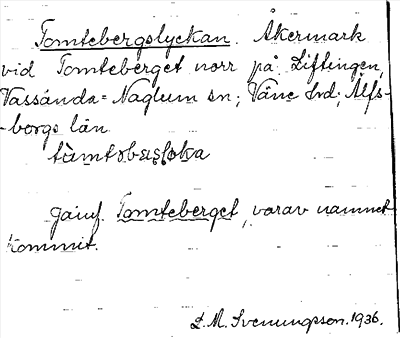 Tomtebergslyckan. Åkermark
vid Tomteberget norr på Liftingen,
Vassända-Naglum sn; Väne hd; Älfs-
-borgs län

Jämf. Tomteberget, varav namnet
kommit.
D. M. Svenungsson. 1936.